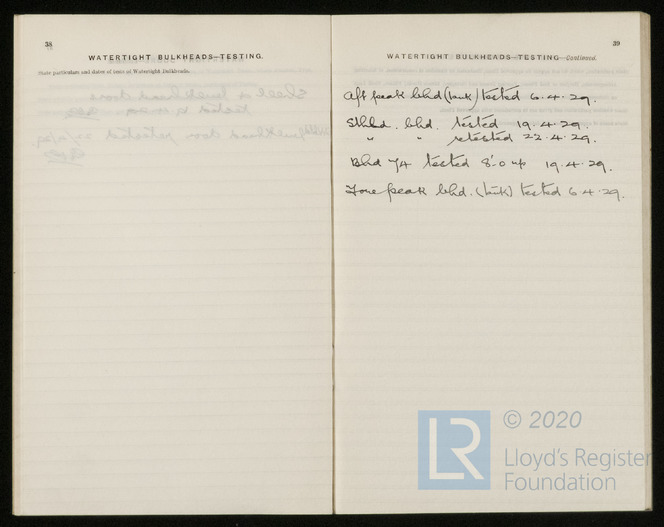 38
WATERTIGHT BULKHEADS—TESTING.
State particulars and dates of tests of Watertight Bulkheads.
39
WATERTIGHT BULKHEADS—TESTING—Continued.
Aft peak bhd (tank) tested 6.4.29.
bhd. tested 19.4.29.
" " retested 22.4.29.
Bhd 74 tested 8'.0 up 19.4.29.
Fore peak bhd. (tank) tested 6.4.29.
LR © 2020
Lloyd's Register
Foundation